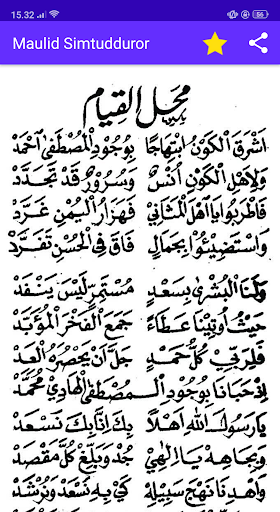 15.32
56
Maulid Simtudduror
محل القيام
اَشْرَقَ الْكَوْنُ ابْتِهَاجًا بِوُجُودِ الْمُصْطَفَى احْمَدْ
وَلِاَهْلِ الْكَوْنِ اُنْسٌ وَسُرُورٌ قَدْ تَجَدَّدْ
فَاطْرَبُوا يَااَهْلَ الْمَثَانِي فَهَزَارُ الْيُمْنِ غَرَّدْ
وَاسْتَضِيْئُوا بِجَمَالٍ فَاقَ فِي الْحُسْنِ تَفَرَّدْ
وَلَنَا الْبُشْرَى بِسَعْدٍ مُسْتَمِرٍّ لَيْسَ يَنْفَدْ
حَيْثُ اُوْتِيْنَا عَطَاءً جَمَعَ الْفَخْرَ الْمُؤَبَّدْ
فَلِرَبِّي كُلُّ حَمْدٍ جَلَّ اَنْ يَحْصُرَهُ الْعَدّ
اِذْ حَبَانَا بِوُجُودِ الْمُصْطَفَى الْهَادِي مُحَمَّدْ
يَارَسُولَ اللهِ اَهْلًا بِكَ اِنَّا بِكَ نُسْعَدْ
وَبِجَاهِهْ يَا اِلٰهِي جُدْ وَبَلِّغْ كُلَّ مَقْصَدْ
وَاهْدِنَا نَهْجَ سَبِيْلِهْ كَيْ بِهِ نُسْعَدْ وَنُرْشَدْ